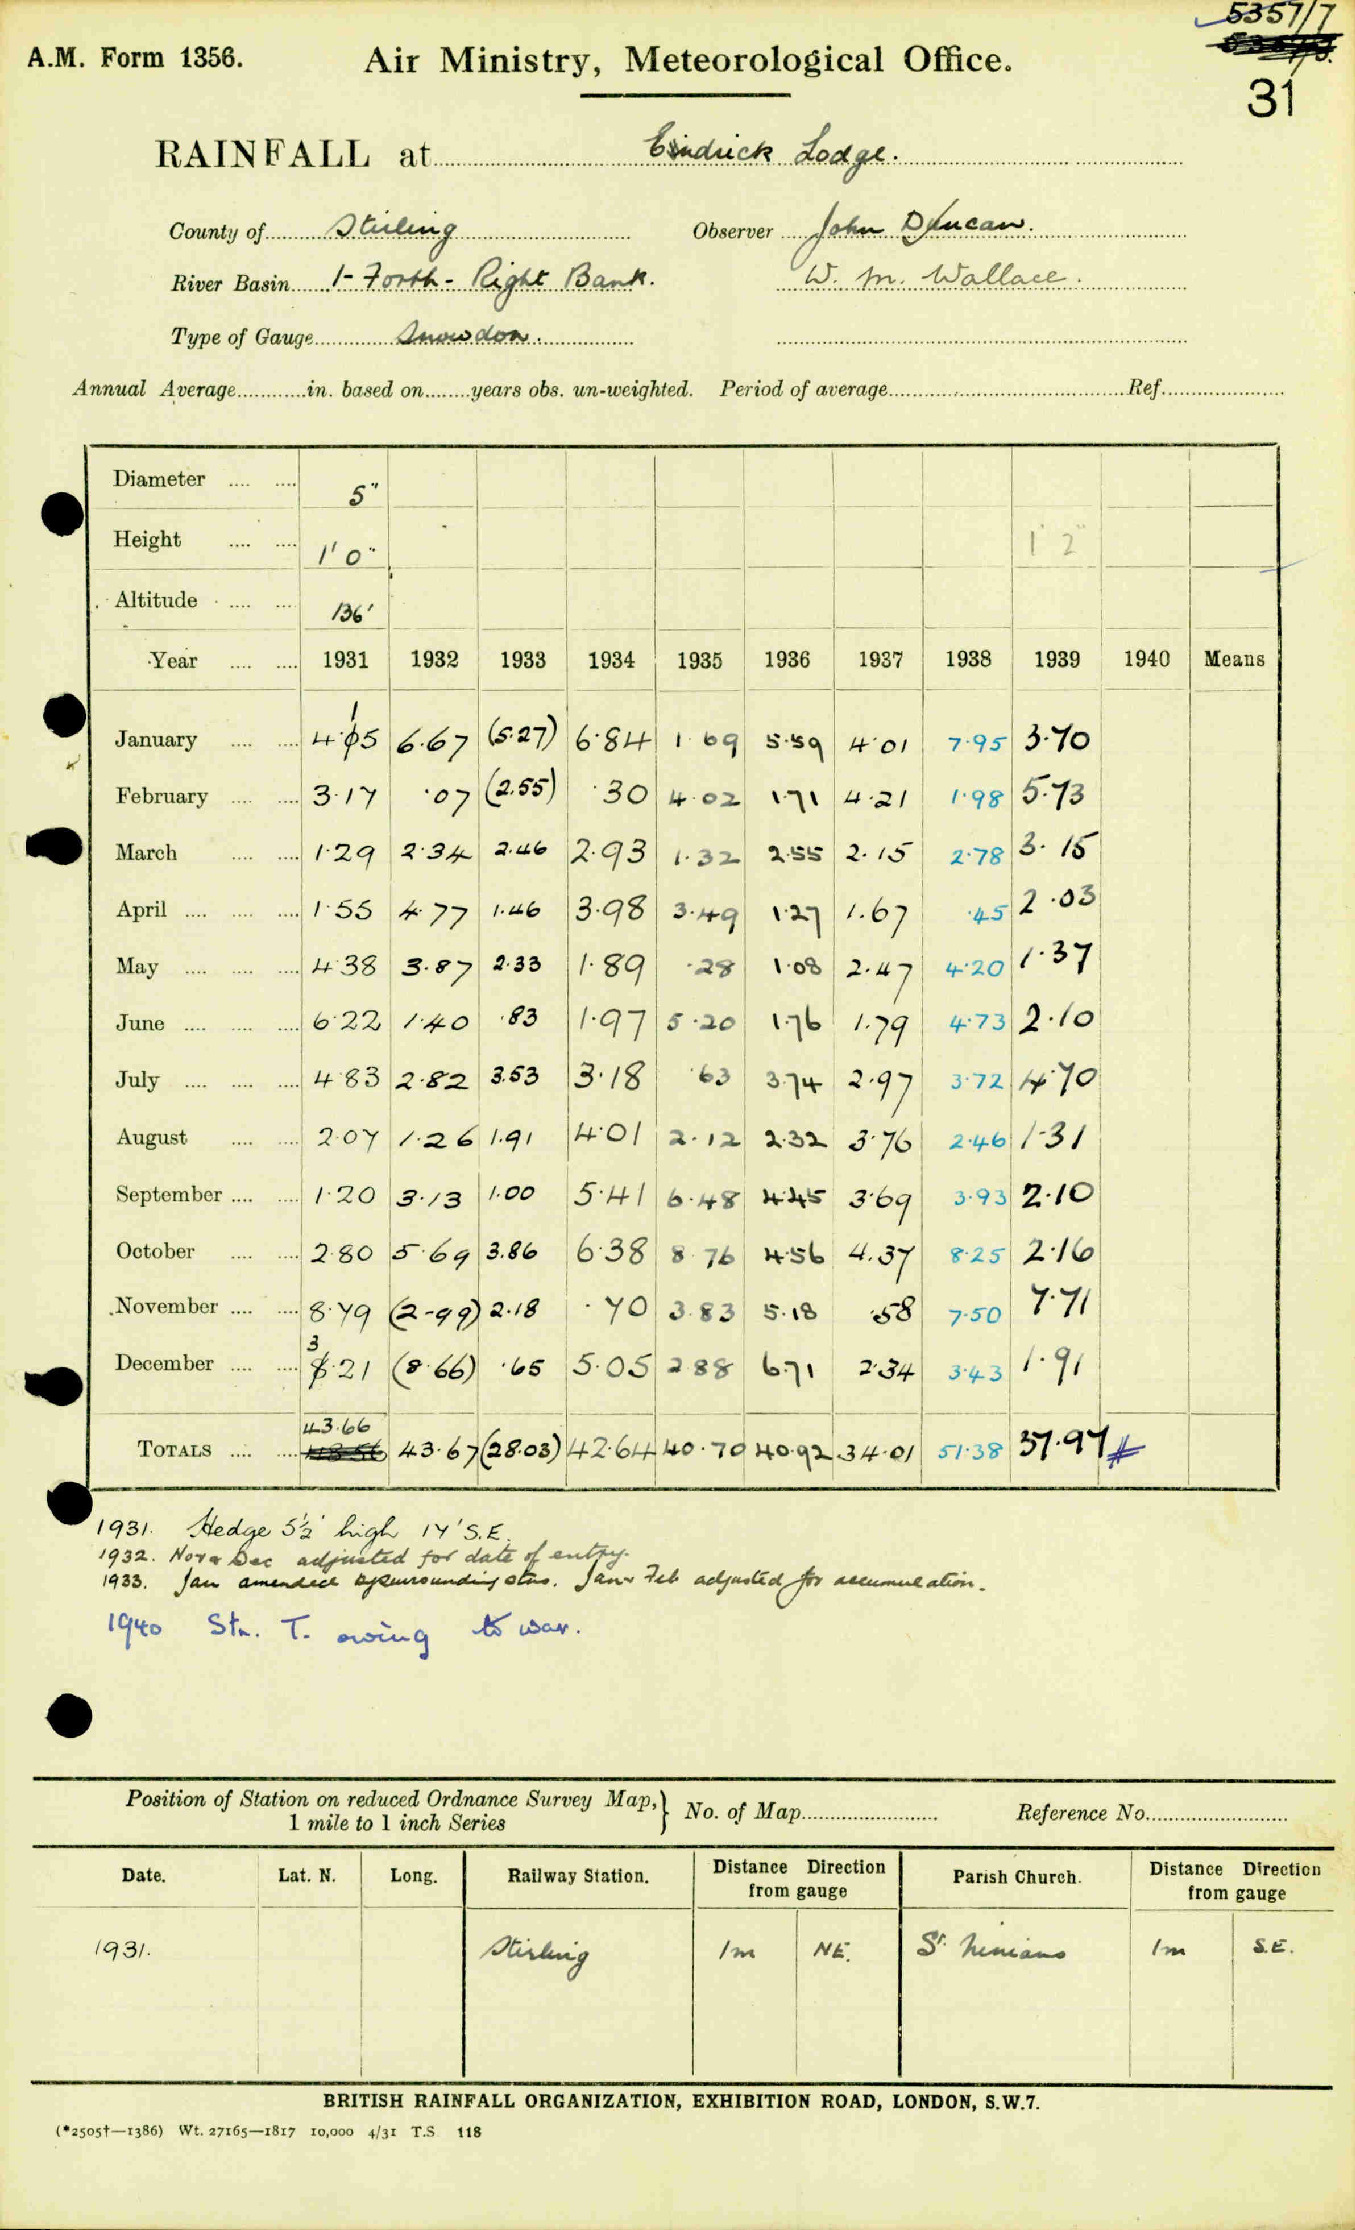 5357/7
A.M. Form 1356.
Air Ministry, Meteorological Office.
31
RAINFALL at Endrick Lodge.
County of Stirling Observer John Duncan.
River Basin 1-Forth-Right Bank. W. M. Wallace.
Type of Gauge Snowdon.
Annual Average in. based on years obs. un-weighted. Period of average Ref.
Diameter 5"
Height 1' 0" 1' 2"
Altitude 136'
Year 1931 1932 1933 1934 1935 1936 1937 1938 1939 1940 Means
January 4·15 6·67 (5·27) 6·84 1·69 5·59 4·01 7·95 3·70
February 3·17 ·07 (2.55) ·30 4·02 1·71 4·21 1·98 5·73
March 1·29 2·34 2·46 2·93 1·32 2·55 2·15 2·78 3·15
April 1·55 4·77 1·46 3·98 3·49 1·27 1·67 ·45 2·03
May 4·38 3·87 2·33 1·89 ·28 1·08 2·47 4·20 1·37
June 6·22 1·40 ·83 1·97 5·20 1·76 1·79 4·73 2·10
July 4·83 2·82 3.53 3·18 ·63 3·74 2·97 3·72 4·70
August 2·07 1·26 1.91 4·01 2·12 2·32 3·76 2·46 1·31
September 1·20 3·13 1·00 5·41 6·48 4·45 3·69 3·93 2·10
October 2·80 5·69 3.86 6·38 8·76 4·56 4.37 8·25 2·16
November 8·79 (2-99) 2·18 ·70 3·83 5·18 ·58 7·50 7·71
December 3·21 (8·66) ·65 5·05 2·88 6·71 2·34 3·43 1·91
TOTALS 43·66 43·67 (28·03) 42·64 40·70 40·92 34·01 51·38 37·97 #
1931. Hedge 5½' high 14' S.E.
1932. Nov & Dec adjusted for date of entry.
1933. Jan amended by surrounding stns. Jan & Feb adjusted for accumulation.
1940 Stn. T. owing to war.
Position of Station on reduced Ordnance Survey Map,
1 mile to 1 inch Series
No. of Map Reference No.
Date. Lat. N. Long. Railway Station. Distance Direction from gauge Parish Church. Distance Direction from gauge
1931. Stirling 1m NE. St. Ninians 1m S.E.
BRITISH RAINFALL ORGANIZATION, EXHIBITION ROAD, LONDON, S.W.7.
(*2505†—1386) Wt. 27165—1817 10,000 4/31 T.S 118